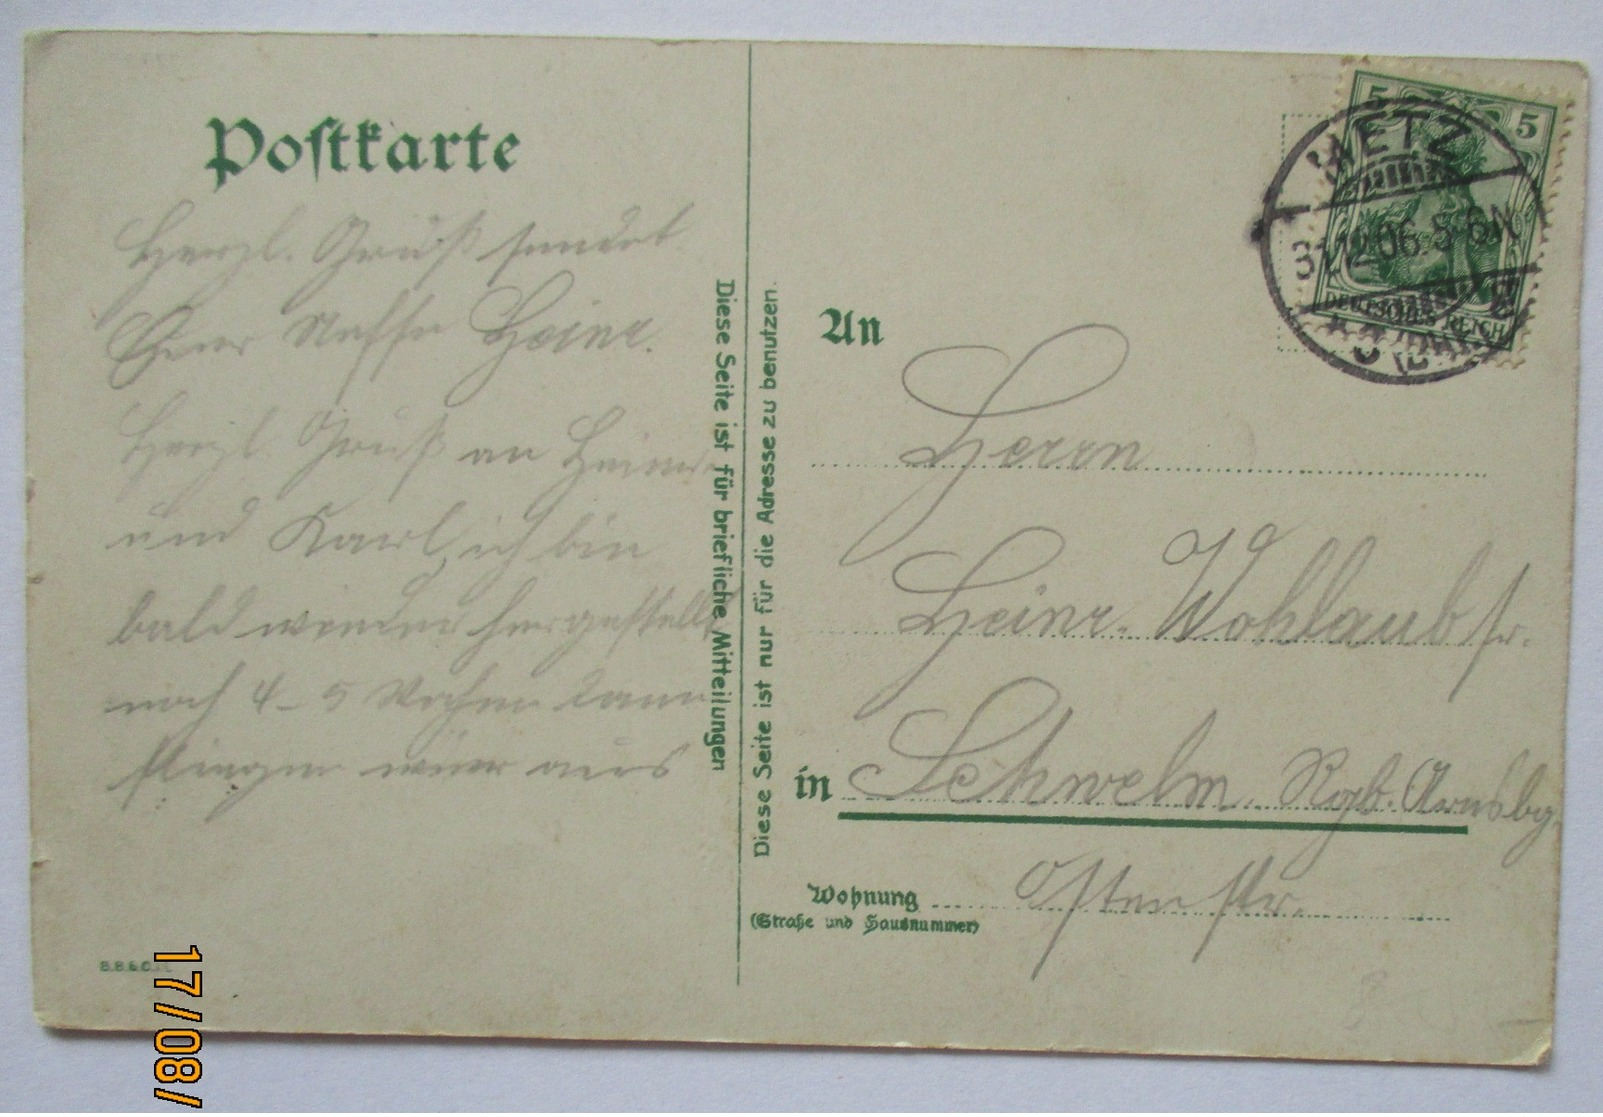 Postkarte
Herzl. Gruß sendet
Euer Neffe Heinr.
Herzl. Gruß an
und Karl, ich bin
bald wieder hergestellt
noch 4-5 Wochen dann
aus
Diese Seite ist für briefliche Mitteilungen
Diese Seite ist nur für die Adresse zu benutzen.
5 5
DEUTSCHES REICH
METZ
31.12.06. 5-6N
An
Herrn
Heinr. Wohlaub sr.
in Schwelm Rgb. Arnsbg.
Wohnung Osten str.
(Straße und Hausnummer)
17/08/